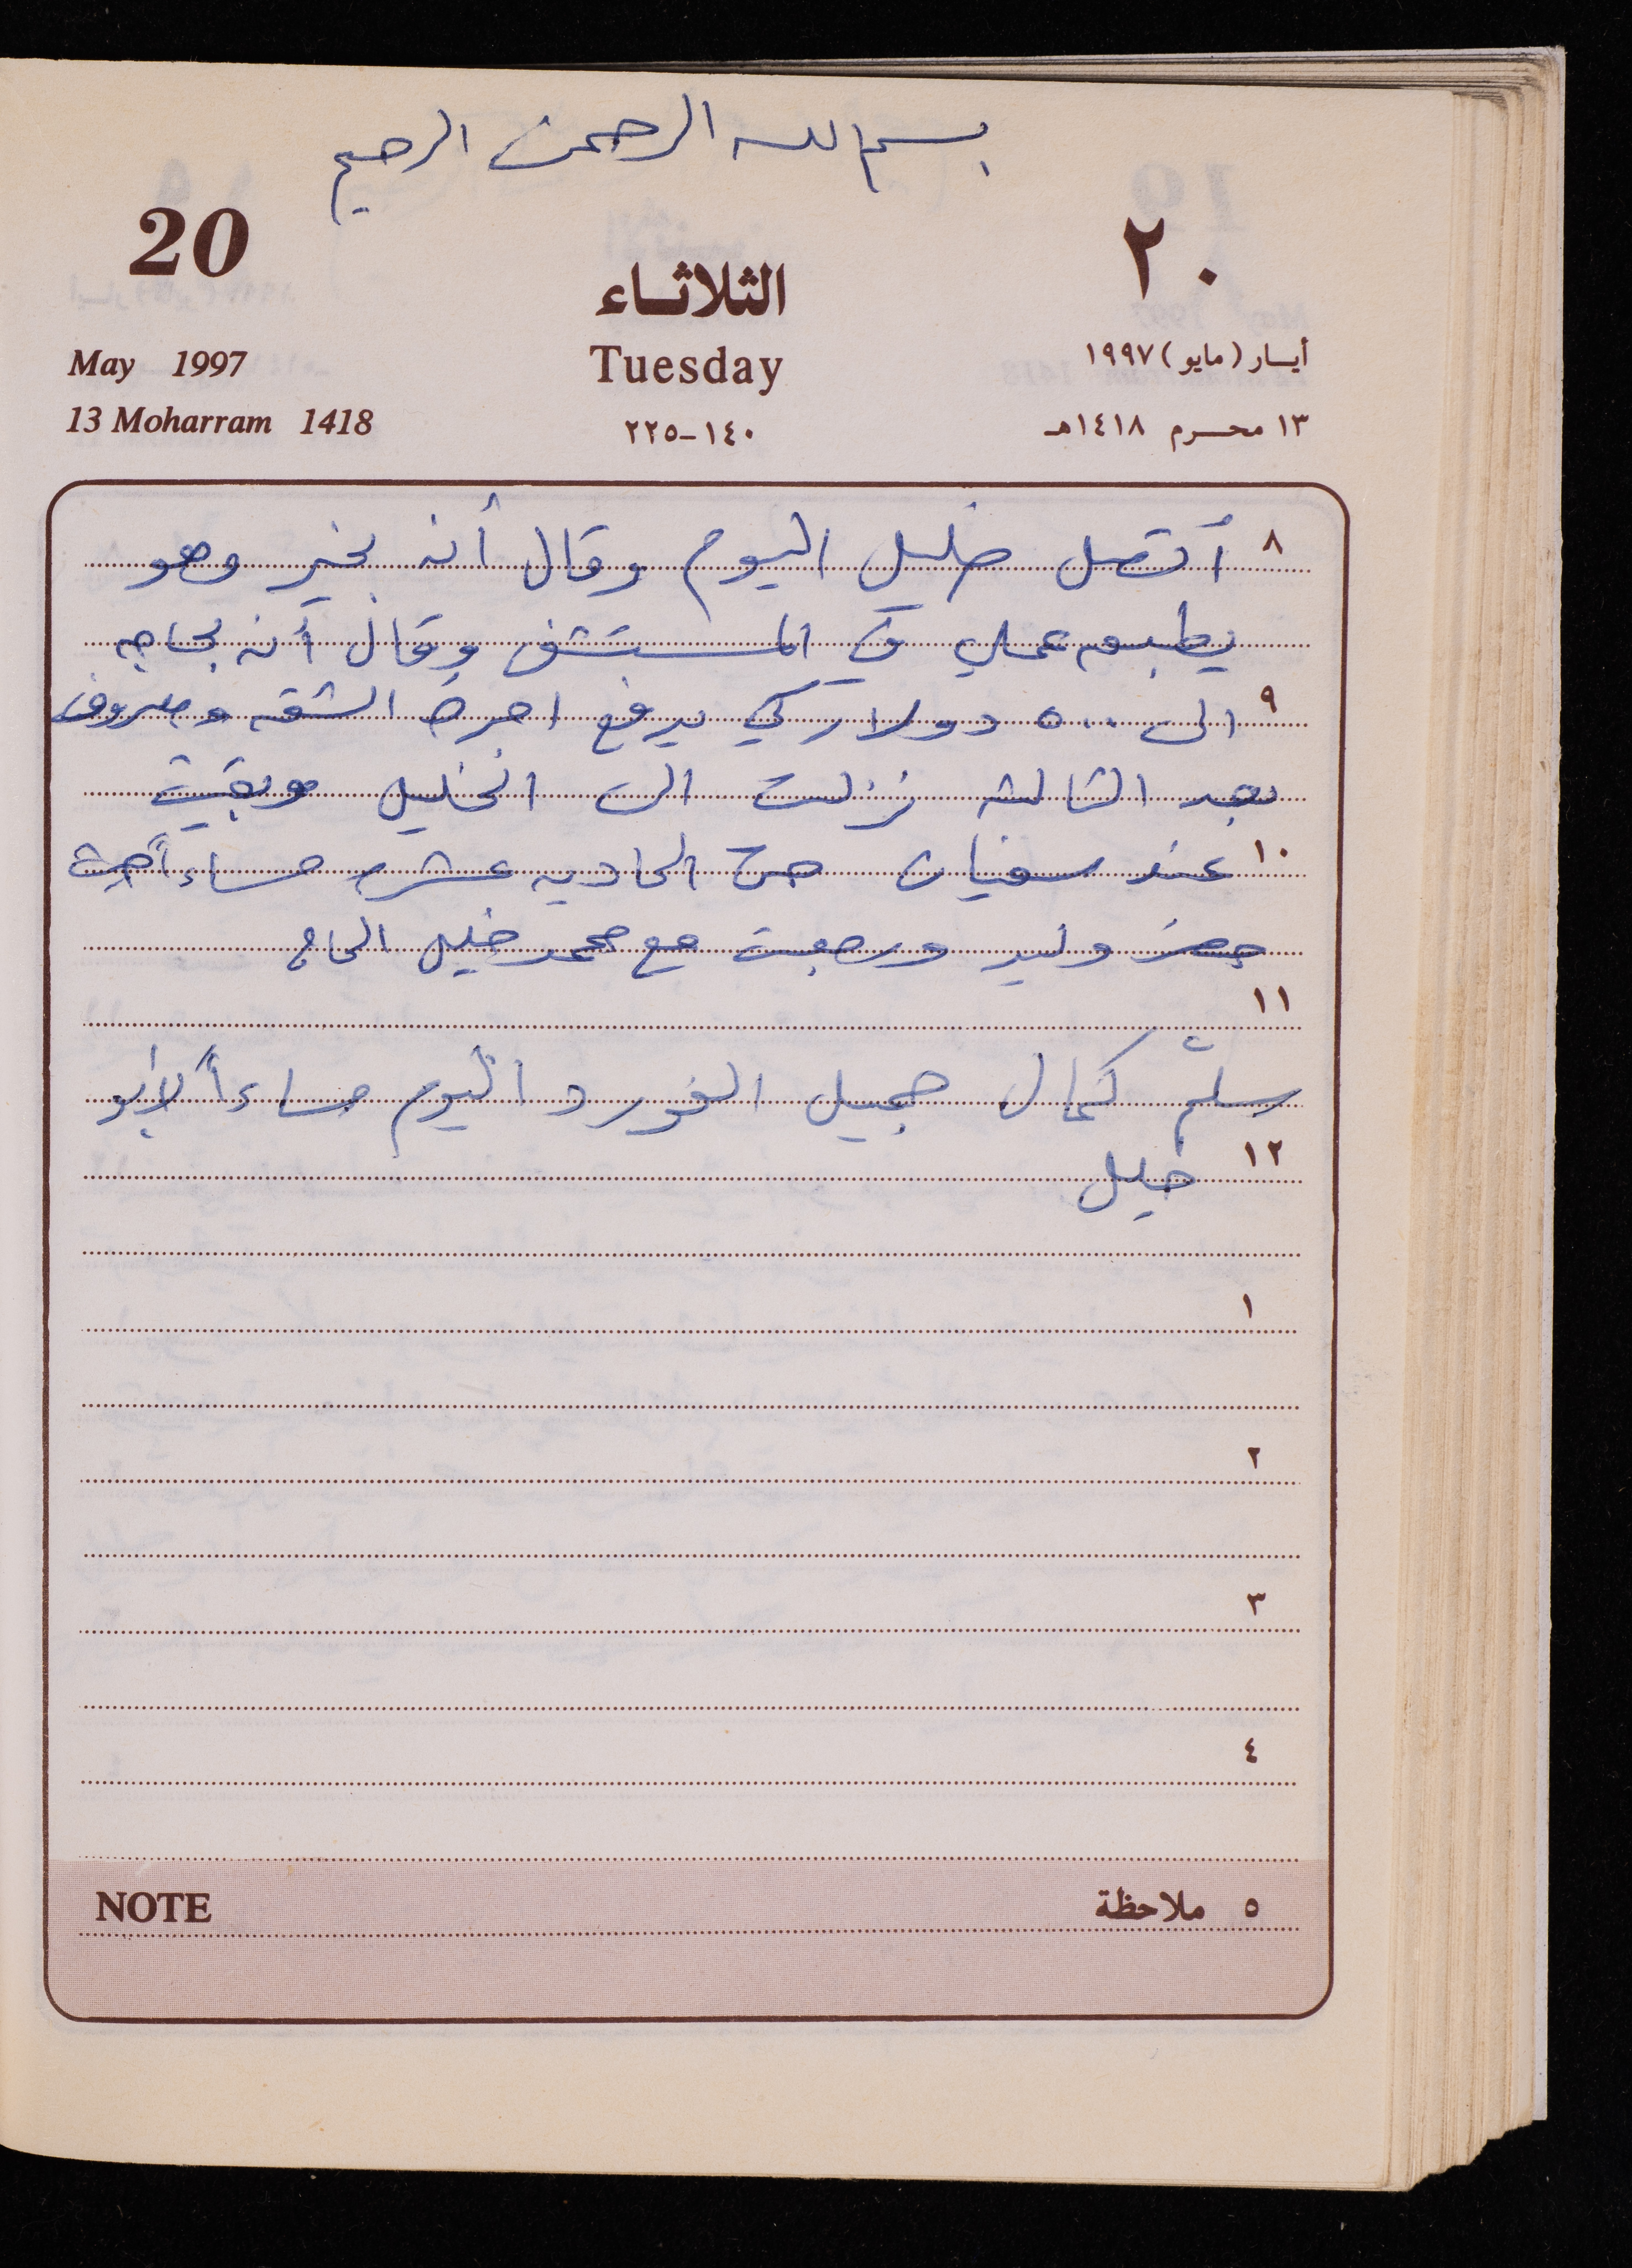 بسم الله الرحمن الرحيم
20
٢٠
الثلاثـاء
May 1997
Tuesday
أيـار (مايو) ١٩٩٧
13 Moharram 1418
١٤٠-٢٢٥
١٣ محـرم ١٤١٨هـ
٨ أتصل خليل اليوم وقال أنه بخير وهو
عملي في المستشفى وقال أنه بحاجه
٩ الى ٥٠٠ دولار كي يدفع اجرة الشقه ومصروف
بعد الثالثه نزلت الى الخليل وبقيت
١٠ عند سفيان حتى الحاديه عشر مساءاً
وليد ورجعت مع محمد خليل الحاج
١١
سلّم كمال جميل الفورد اليوم مساءاً لابو
١٢ خليل
١
٢
٣
٤
NOTE
٥ ملاحظة